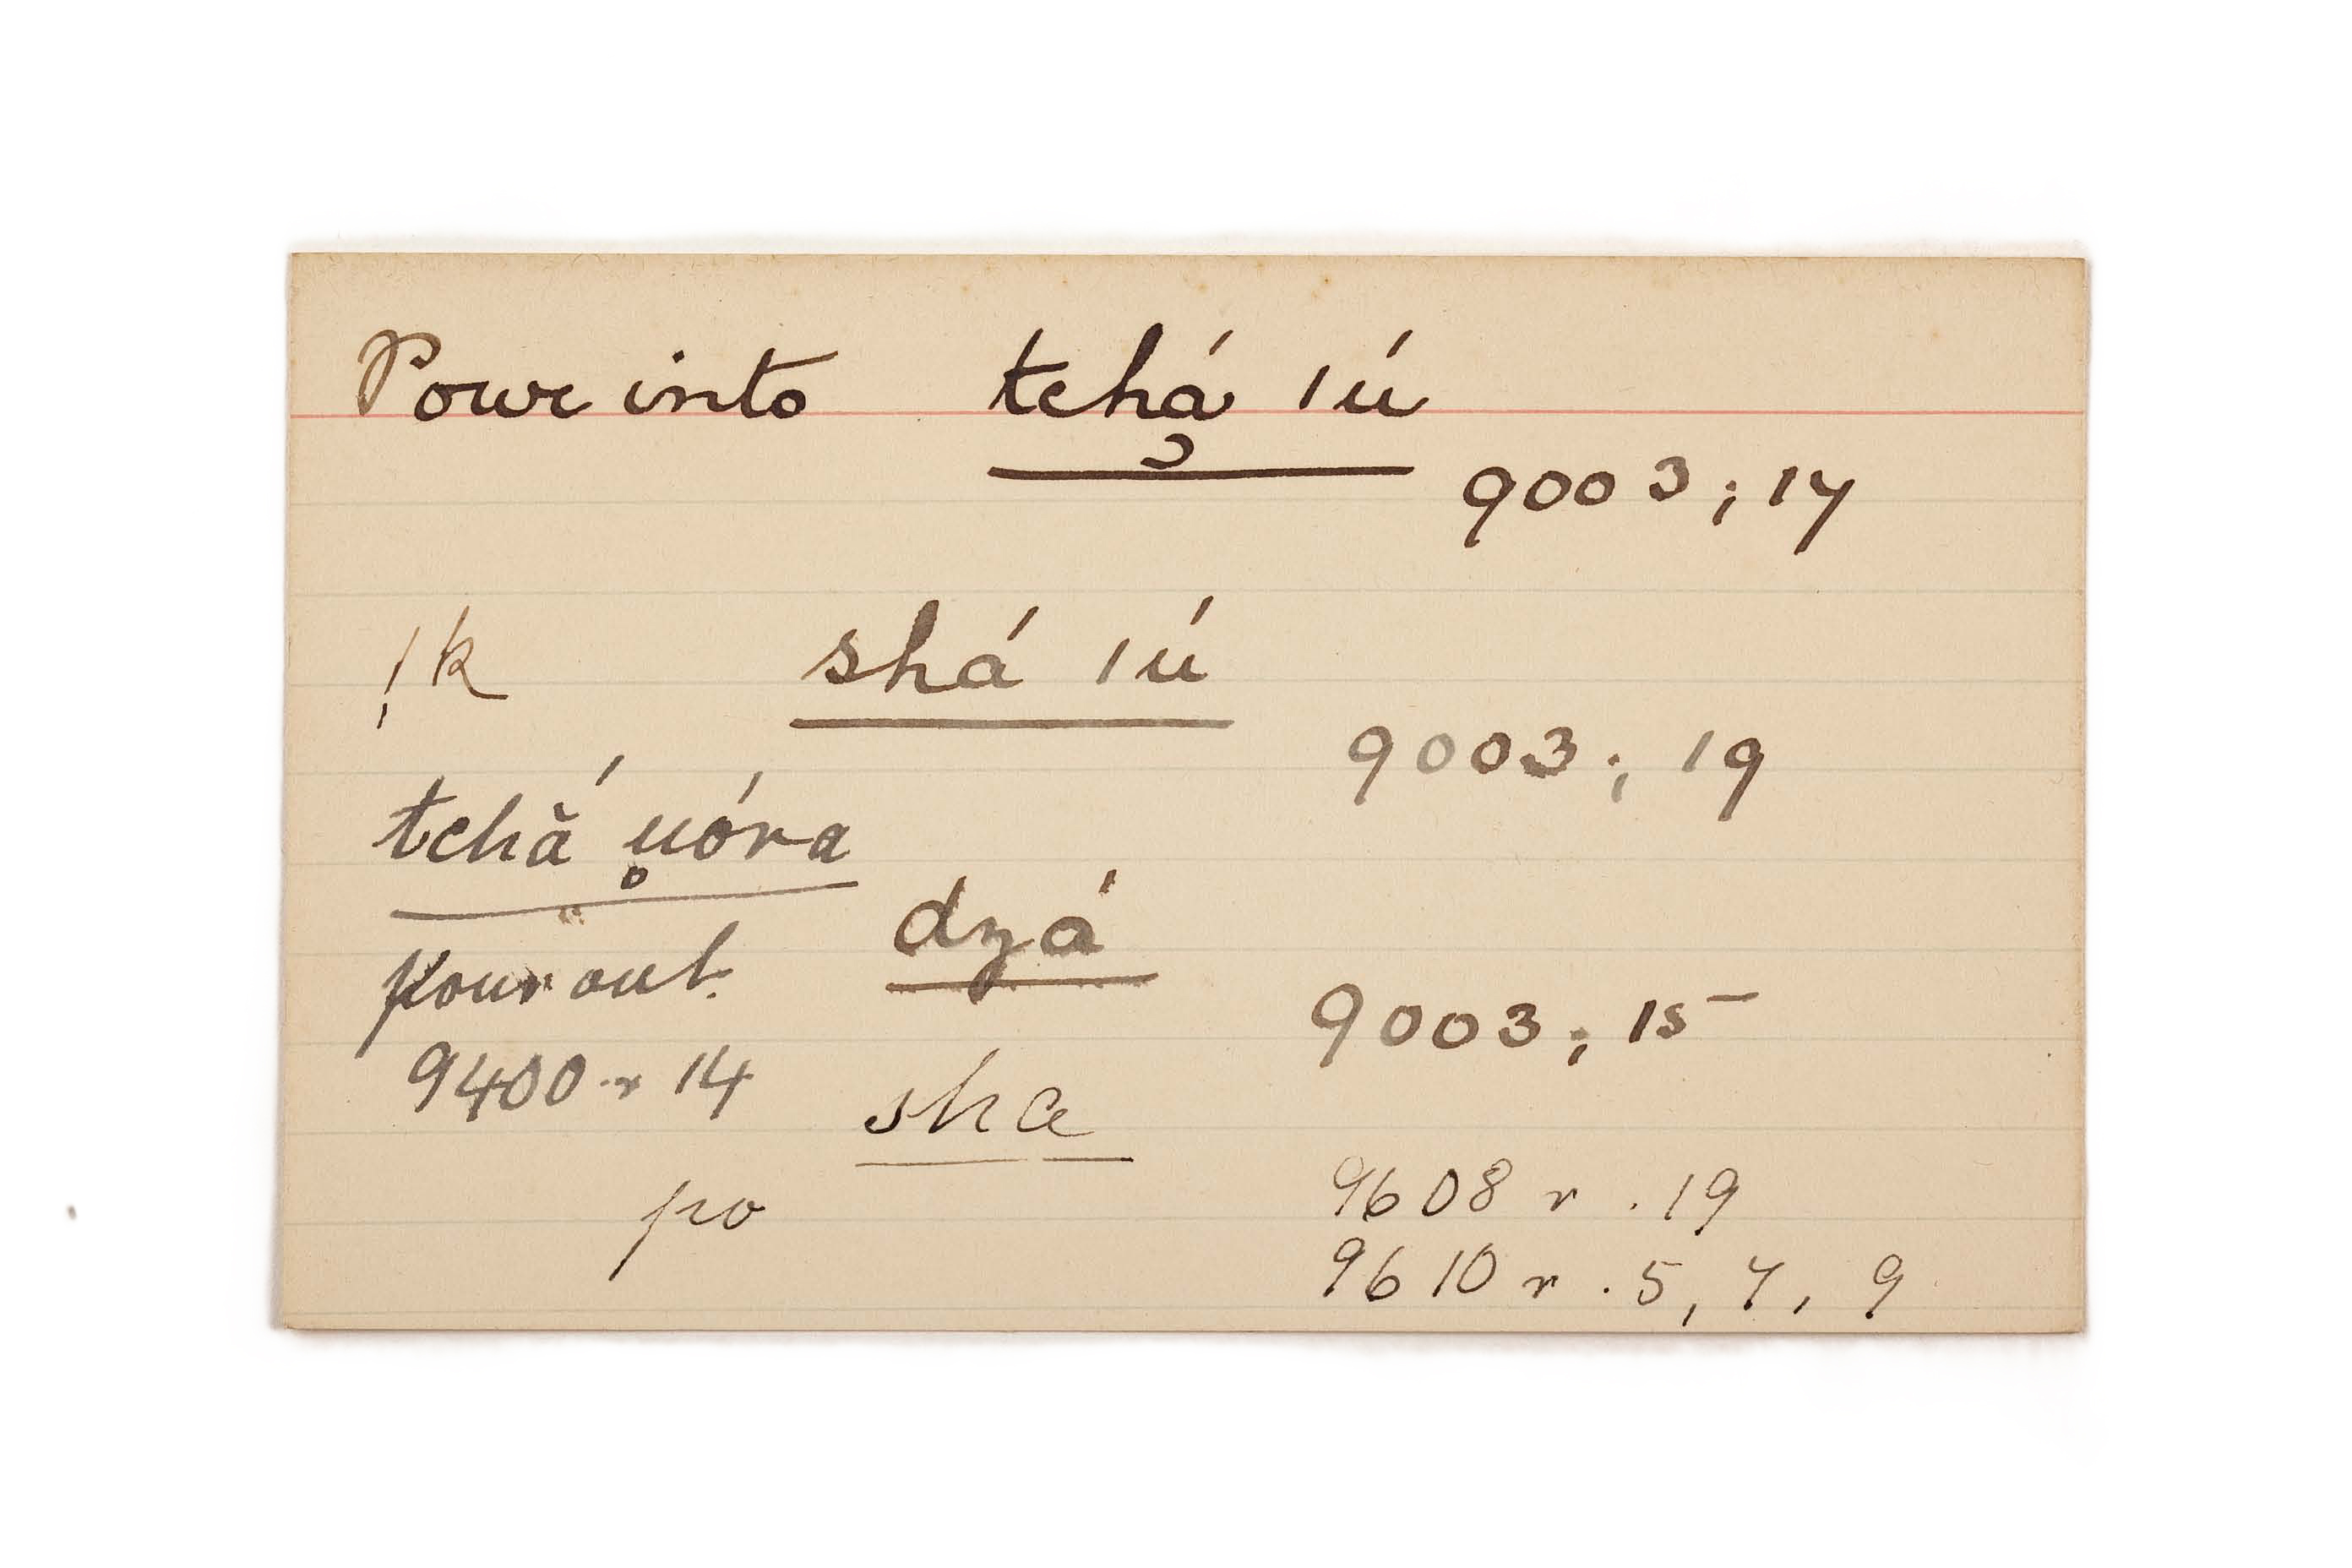 Pour into tchá̰ ıú
9003; 17
!k shá ıú
9003; 19
tchä́ u̥óra
dzá
pour out.
9003; 15
9400 r 14
sha
po
9608 r . 19
9610 r . 5, 7, 9